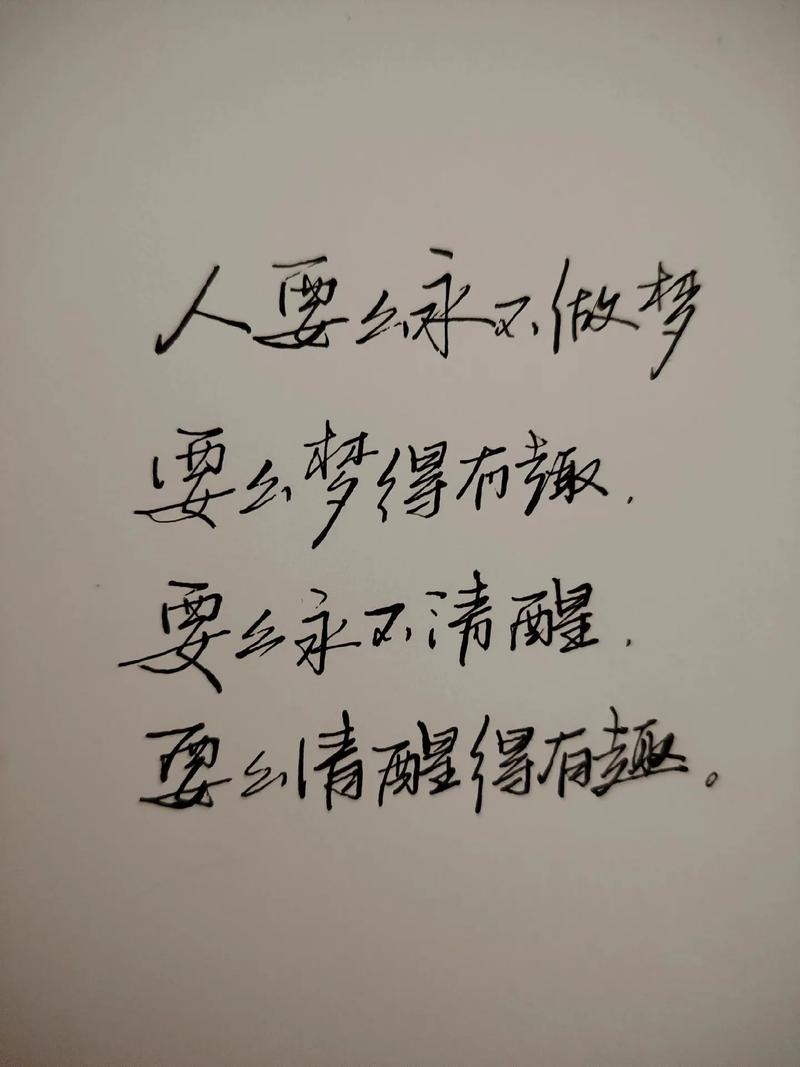 人要么永不做梦
要么梦得有趣.
要么永不清醒.
要么清醒得有趣。